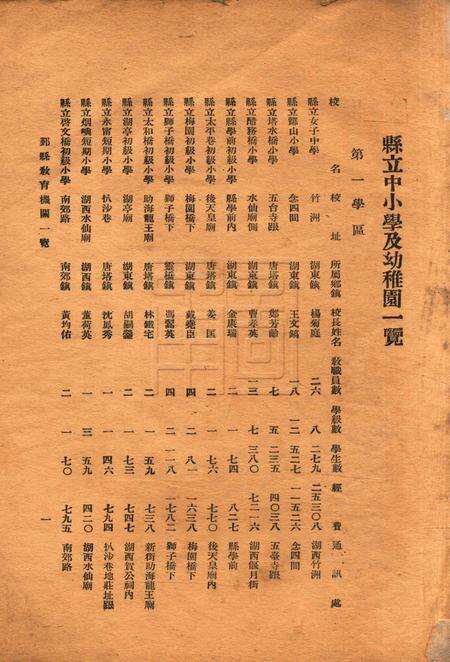 縣立中小學及幼稚園一覽
第一學區
校名 校址 所屬鄉鎮 校長姓名 教職員數 學級數 學生數 經費 通訊處
縣立女子中學 竹洲 湖東鎮 楊菊庭 二六 八 二七九 二五三〇八 湖西竹洲
縣立山小學 念四間 湖東鎮 王文 一八 一二 五二七 一一五二六 念四間
縣立塔水橋小學 五台寺跟 唐塔鎮 鄭芳齡 七 五 二三五 四〇三八 五臺寺跟
縣立醋務橋小學 水仙廟側 湖西鎮 曹孝英 一三 七 三八〇 七二一六 湖西偃月街
縣立縣學前初級小學 縣學前內 湖東鎮 金康瑞 二 一 七四 八二七 縣學前
縣立太平巷初級小學 後天皇廟 唐塔鎮 姜匡 二 一 七六 七七〇 後天皇廟內
縣立梅園初級小學 梅園橋下 湖東鎮 戴臣 四 二 八一 一六三八 梅園橋下
縣立獅子橋初級小學 獅子橋下 靈橋鎮 馮馨英 四 二 一一八 一七八二 獅子橋下
縣立太和橋初級小學 助海龍王廟 唐塔鎮 林鐵宅 二 一 五九 七三八 新街助海龍王廟
縣立湖亭初級小學 湖亭廟 湖東鎮 胡嗣 二 一 七三 七四七 湖西賀公祠內
縣立永甯短期小學 扒沙巷 唐塔鎮 沈鳳秀 一 一 四六 七九四 扒沙巷地莊址跟
縣立烟嶼短期小學 湖西水仙廟 湖西鎮 董荷英 一 三 五九 四二〇 湖西水仙廟
縣立啓文橋初級小學 南郊路 南郊鎮 黃均佑 二 一 七〇 七九五 南郊路
鄞縣教育機關一覽 一